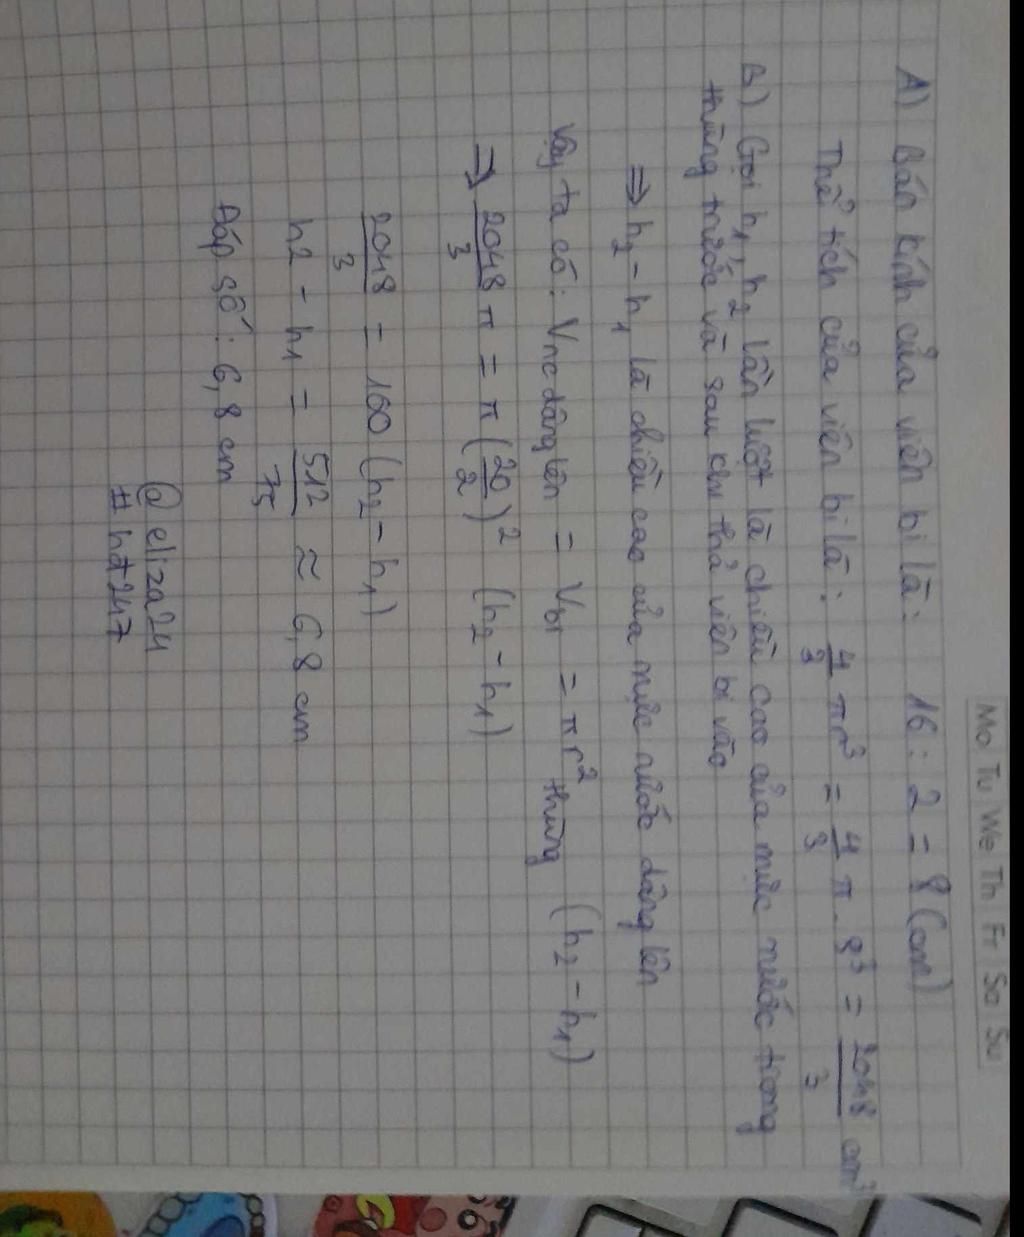 Mo Tu We Th Fr Sa Su
A) Bán kính của viên bi là: 16 : 2 = 8 (cm)
Thể tích của viên bi là: 4/3 πr³ = 4/3 π . 8³ = 2048/3 cm³
B) Gọi h₁, h₂ lần lượt là chiều cao của mực nước trong
thùng trước và sau khi thả viên bi vào
⇒ h₂ - h₁ là chiều cao của mực nước dâng lên
Vậy ta có: Vnc dâng lên = Vbi = πr² thùng (h₂ - h₁)
⇒ 2048/3 π = π (20/2)² (h₂ - h₁)
2048/3 = 100 (h₂ - h₁)
h2 - h1 = 512/75 ≈ 6,8 cm
Đáp số: 6,8 cm
@eliza24
#hđ247